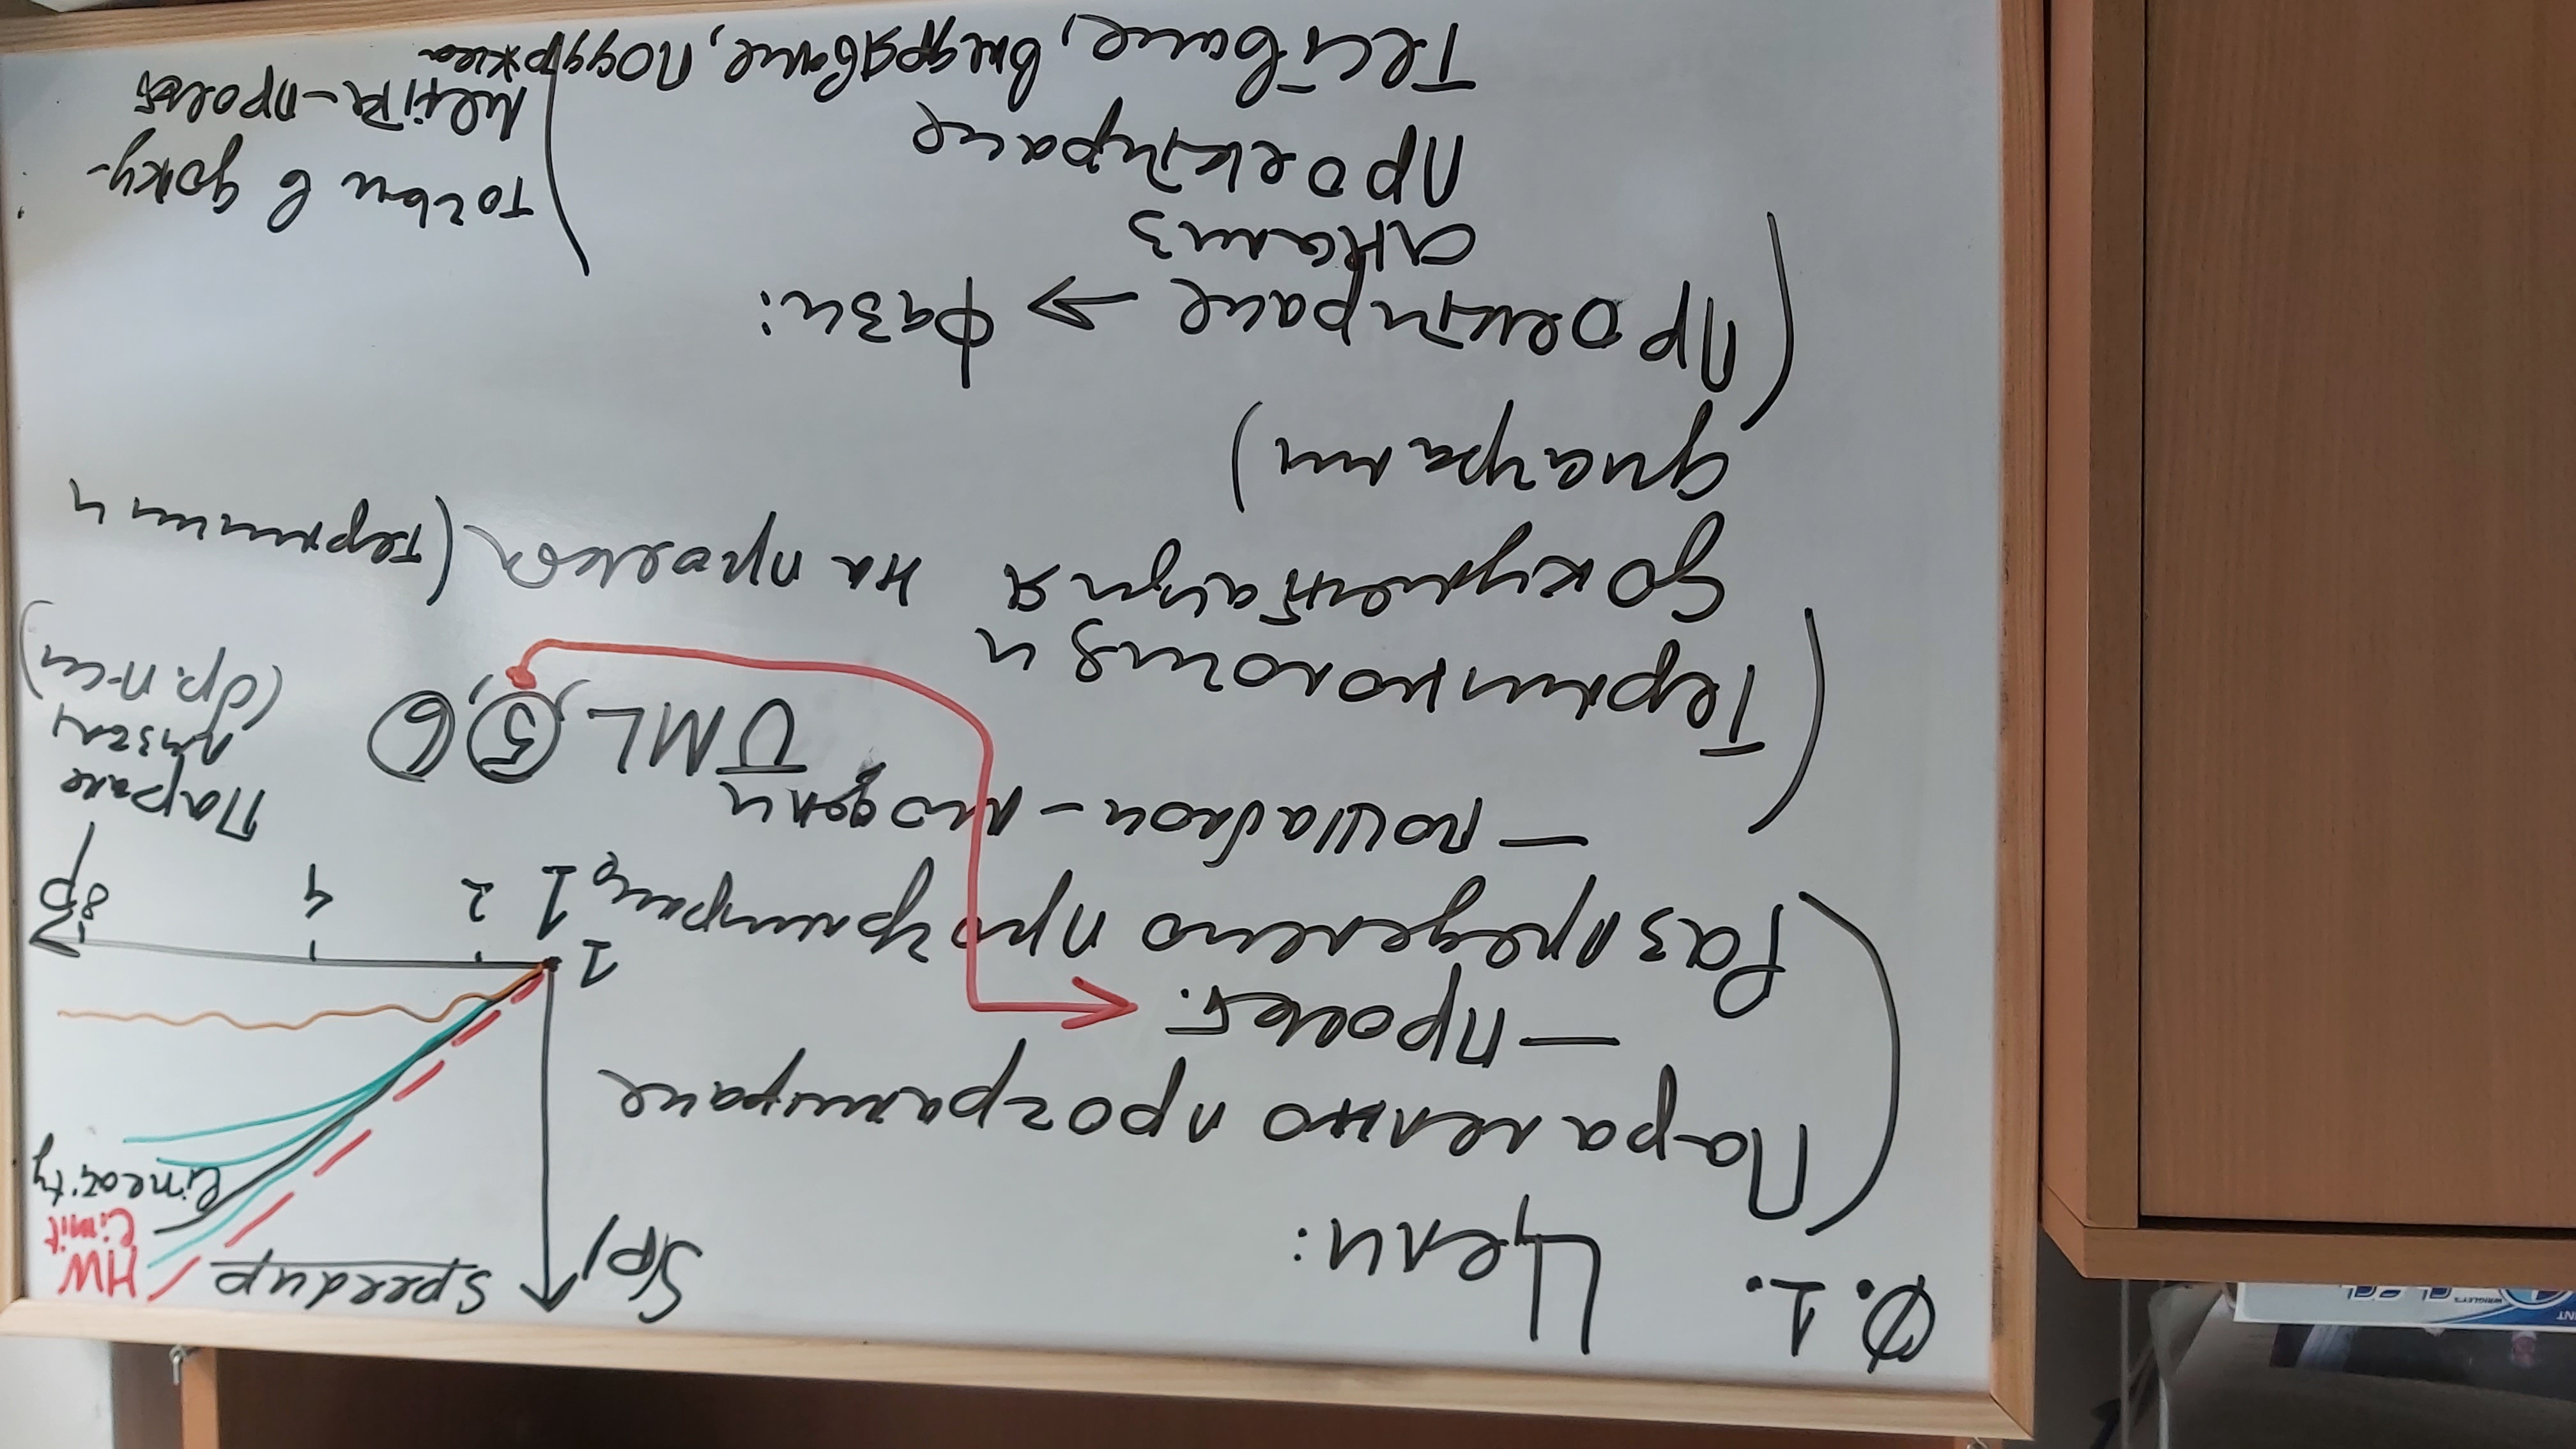 Ø.1. Цели:
Паралелно програмиране
— проект.
Разпределено програмиране
— пошаблони - модели
UML, 5, 6
Терминология и
документация на проекта (термини и
диаграми)
Проектиране → Фази:
анализ
проектиране
тестване, внедряване, поддръжка
точки в доку-
мента-проект
S(p)
Speedup
HW
limit
linearity
1
1 2 4 8 p
Парале
лизъм
(бр. п-си)
WRIGLEY'S